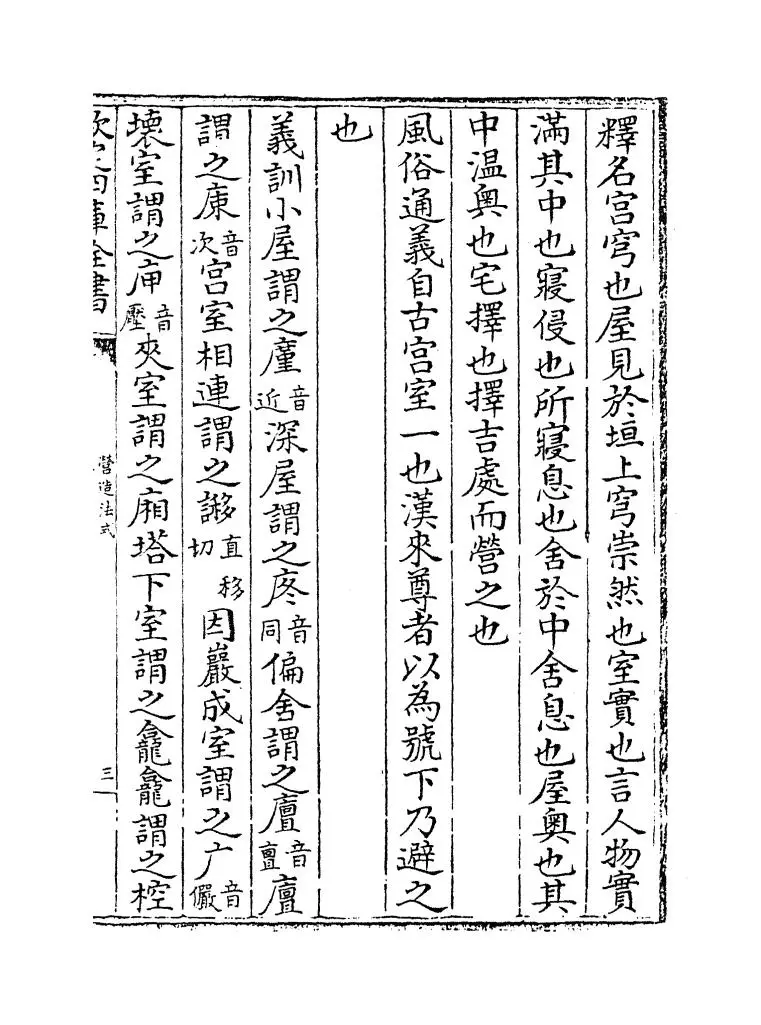 釋名宫穹也屋見於垣上穹崇然也室實也言人物實
滿其中也寢侵也所寢息也舍於中舍息也屋奥也其
中温奥也宅擇也擇吉處而營之也
風俗通義自古宫室一也漢來尊者以為號下乃避之
也
義訓小屋謂之廑音近深屋謂之庝音同偏舍謂之廅音亶廅
謂之庲音次宫室相連謂之謻直移切因巖成室謂之广音儼
壊室謂之庘音壓夾室謂之廂塔下室謂之龕龕謂之椌
欽定四庫全書
營造法式
三